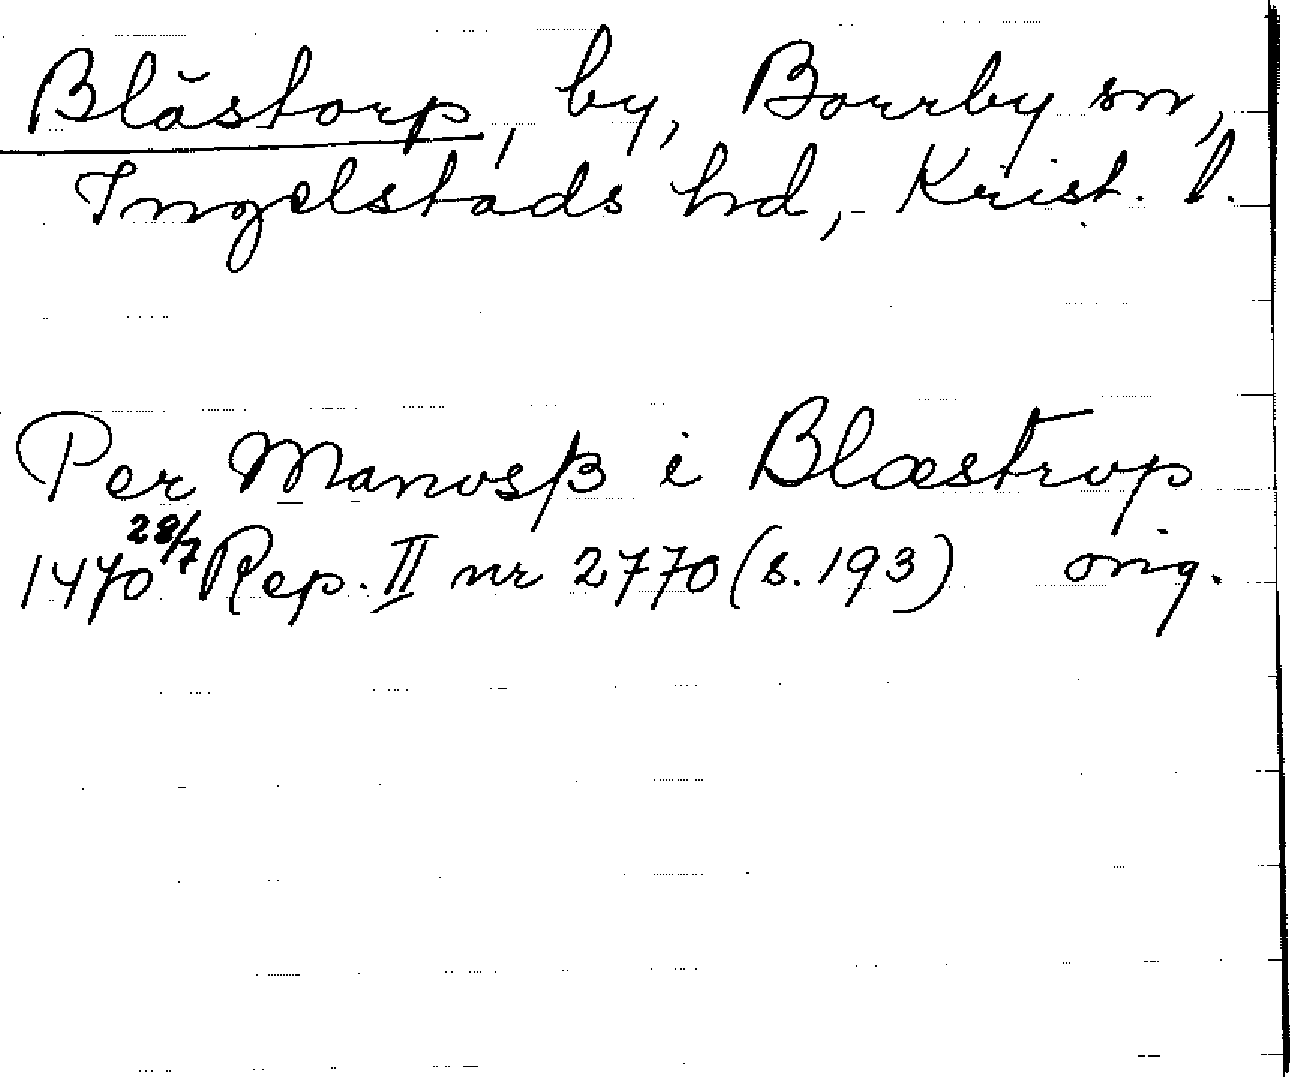 Blåstorp, by, Borrby sn,
Ingelstads hd, Krist. l.
Per Manosß i Blæstrop
1470 28/7 Rep. II nr 2770 (s. 193) orig.